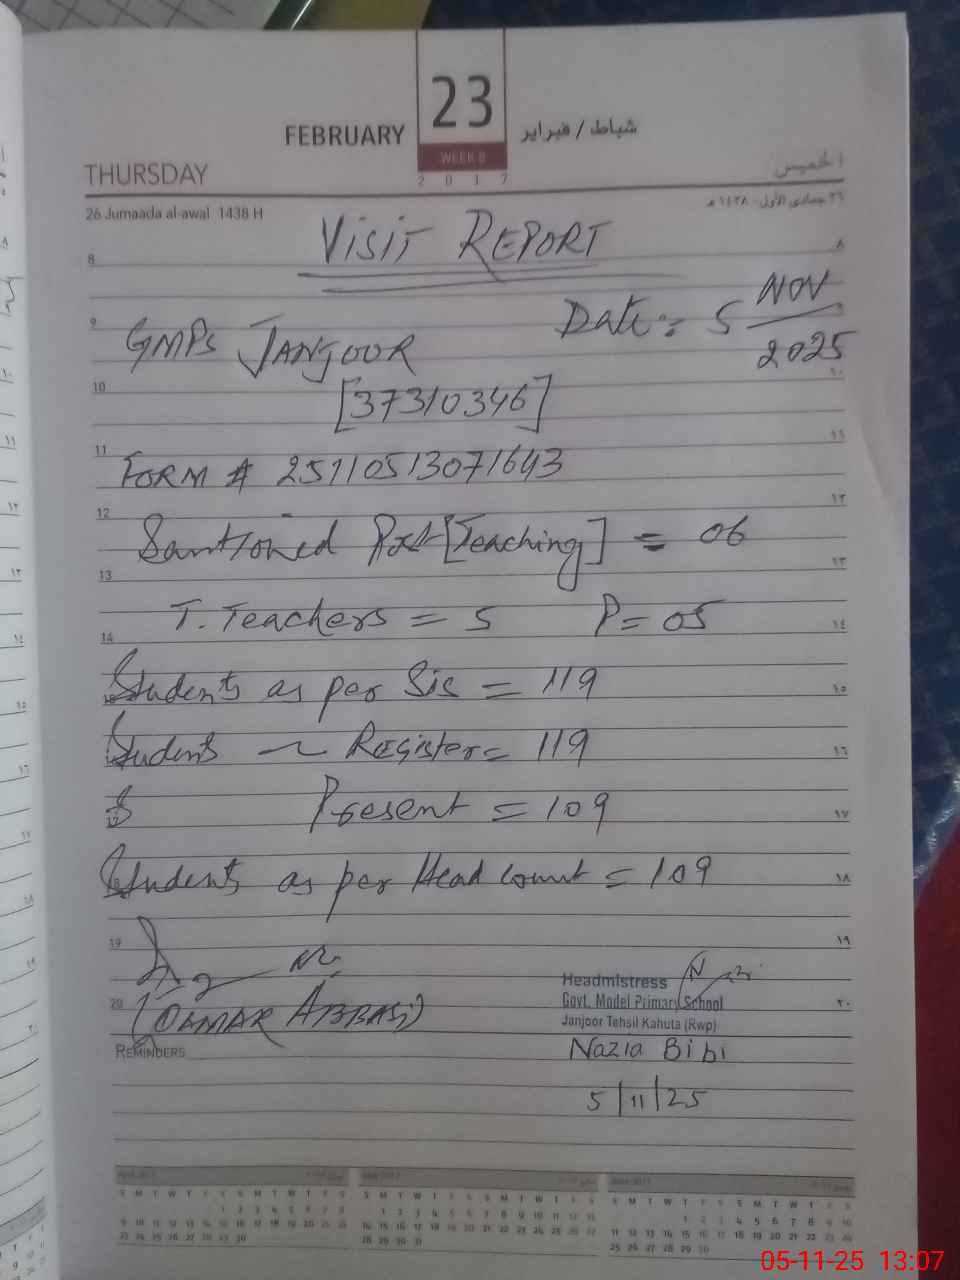 23
FEBRUARY
شباط / فبراير
WEEK 8
2 0 1 7
THURSDAY
الخميس
26 Jumaada al-awal 1438 H
٢٦ جمادى الأول - ١٤٣٨ هـ
VISIT REPORT
GMPS JANJOOR Date:- 5 NOV
2025
[37310346]
FORM # 25110513071643
Santioned Post [Teaching] = 06
T. Teachers = 5 P = 05
Students as per Sis = 119
Students ~ Register = 119
Present = 109
Students as per Head count = 109
(QAMAR ABBASI)
Headmistress
Govt. Model Primary School
Janjoor Tehsil Kahuta (Rwp)
Nazia Bibi
5/11/25
REMINDERS
05-11-25 13:07